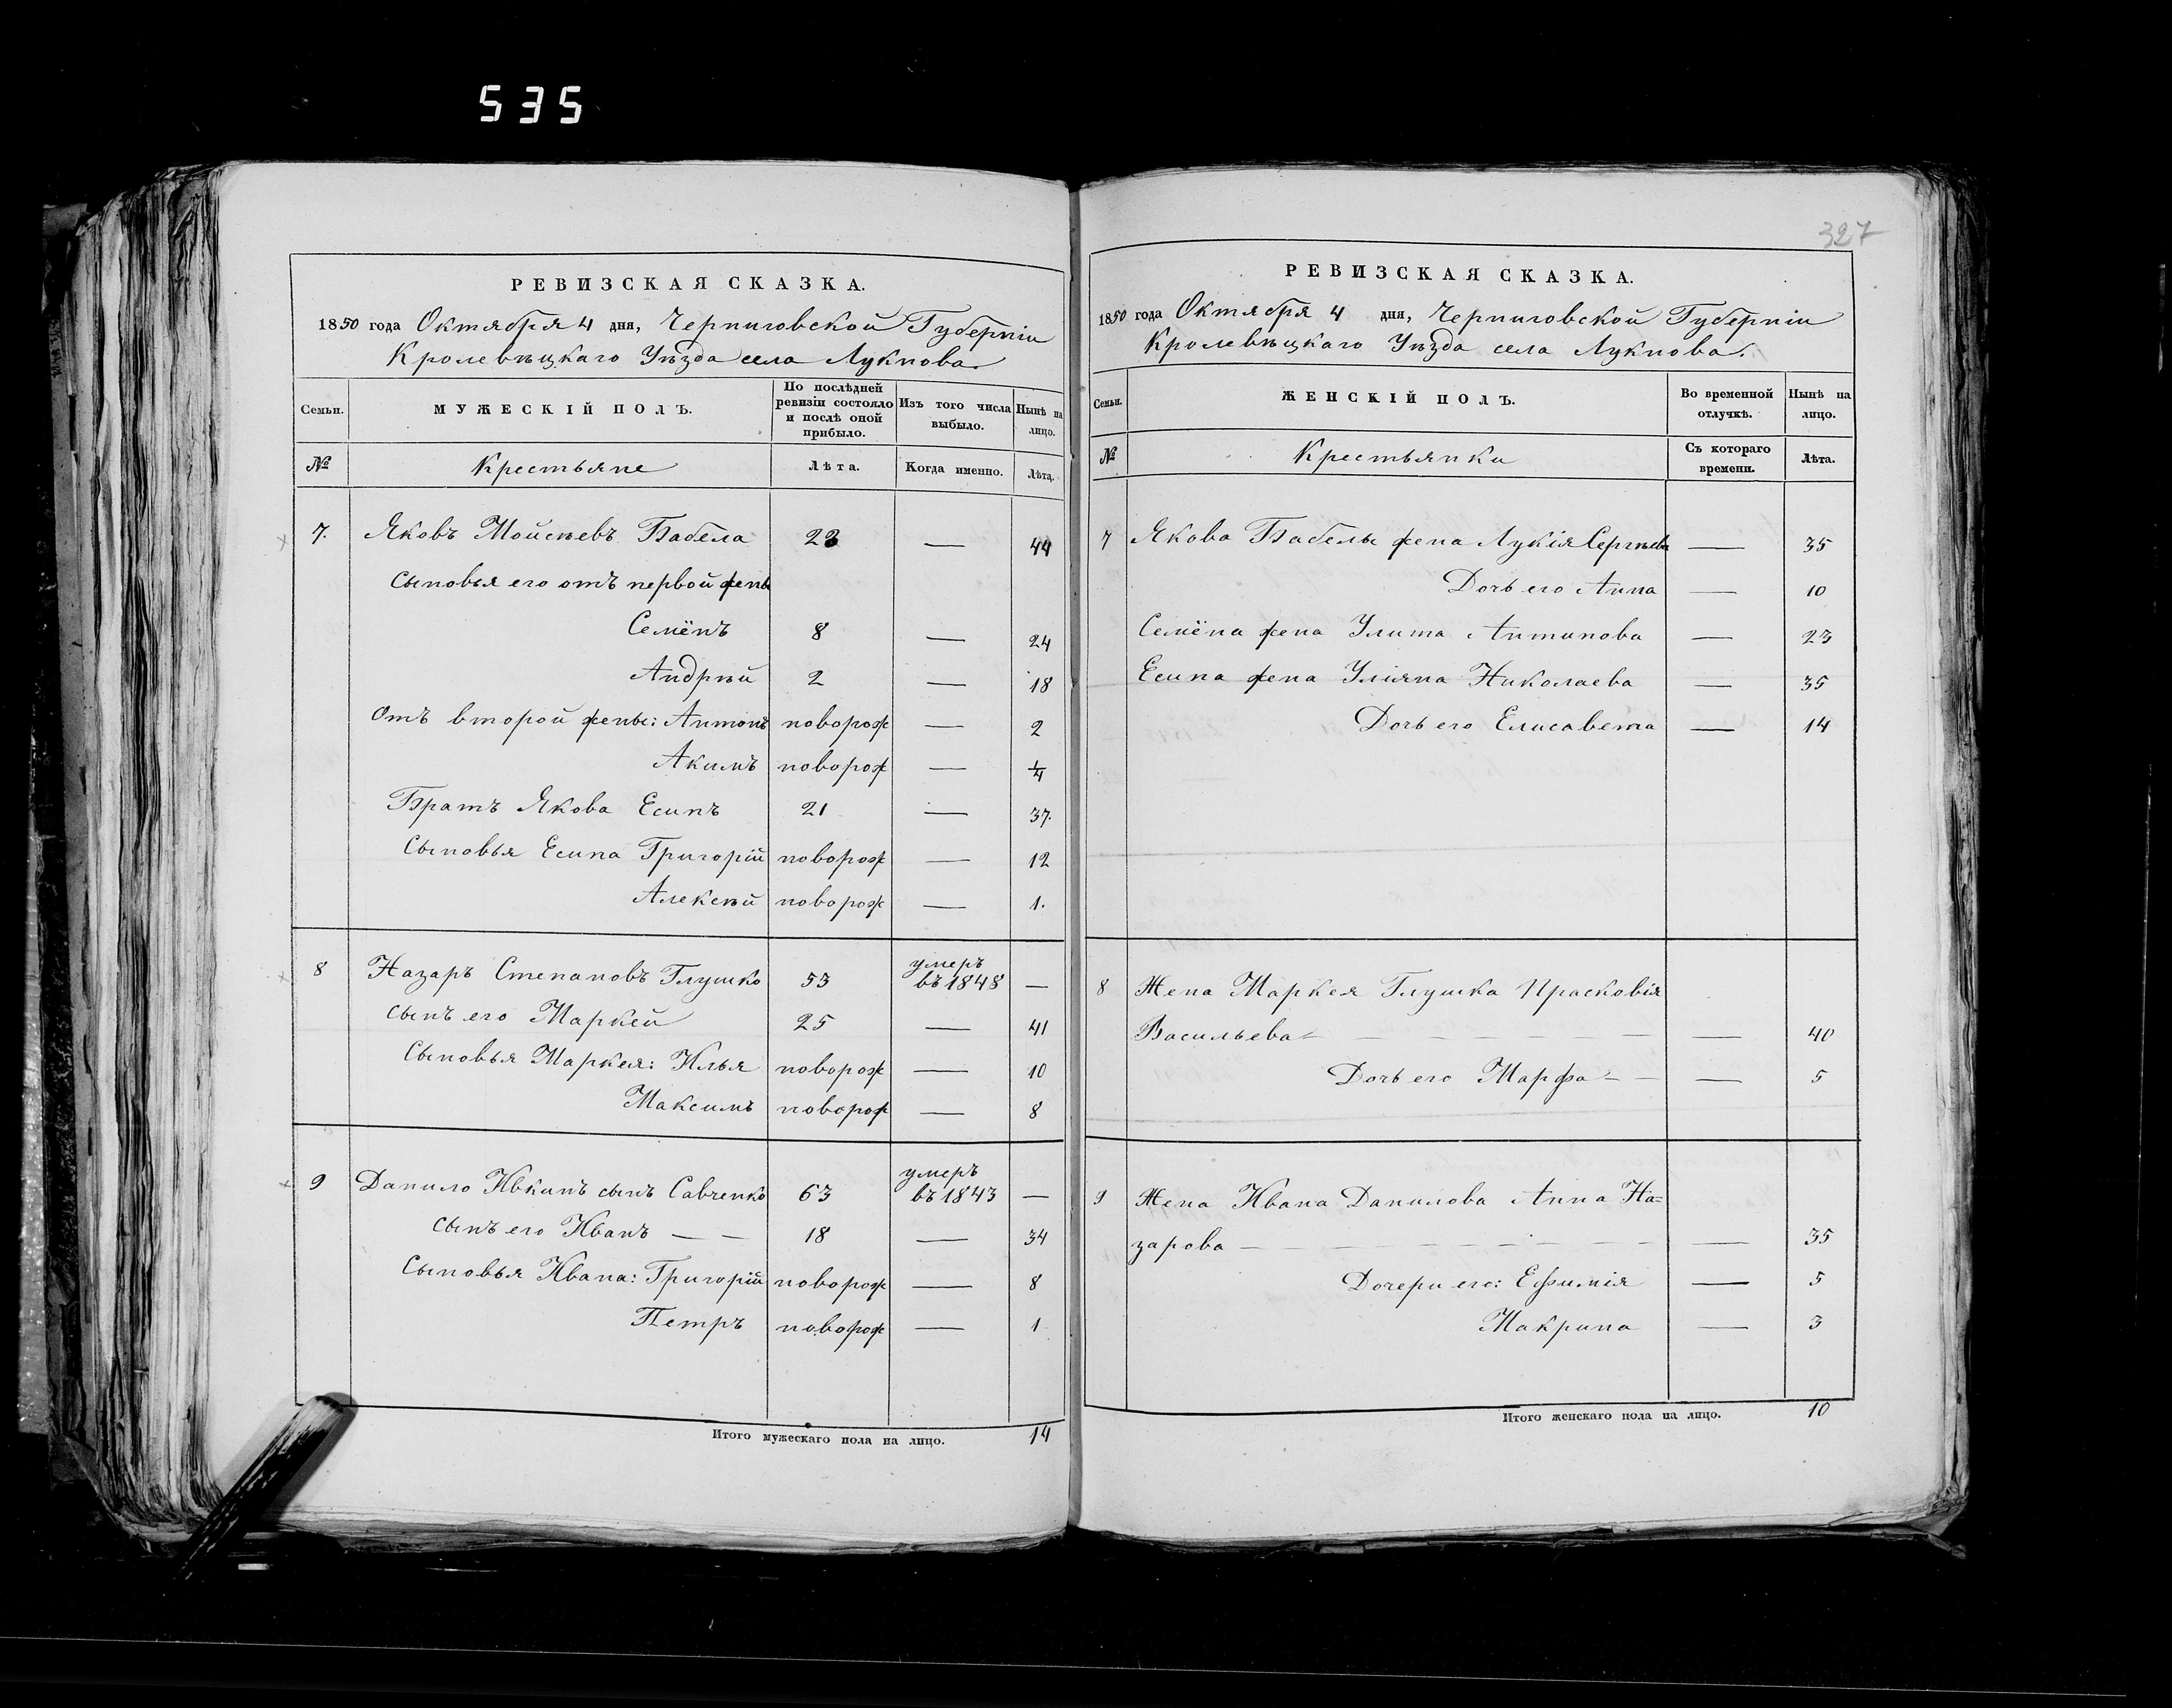 535
327
РЕВИЗСКАЯ СКАЗКА.
1850 года Октября 4 дня, Черниговской Губерніи
Кролевѣцкаго Уѣзда села Лукнова.
Семьи. МУЖЕСКІЙ ПОЛЪ. По послѣдней ревизіи состояло и послѣ оной прибыло. Изъ того числа выбыло. Нынѣ на лицо.
№ Крестьяне Лѣта. Когда именно. Лѣта.
7. Яковъ Мойсѣевъ Бабела — 44
Сыновья его отъ первой жены
Семёнъ 8 — 24
Андрѣй 2 — 18
Отъ второй жены: Антонъ новорож — 2
Акимъ новорож — 1/4
Братъ Якова Есипъ 21 — 37.
Сыновья Есипа Григорій новорож — 12
Алексѣй новорож — 1.
8 Назаръ Степановъ Глушко 53 умеръ въ 1848 —
сынъ его Маркей 25 — 41
Сыновья Маркея: Илья новорож — 10
Максимъ новорож — 8
9 Данило Ивкинъ сынъ Савченко 63 умеръ въ 1843 —
сынъ его Иванъ — — 18 — 34
Сыновья Ивана: Григорій новорож — 8
Петръ новорож — 1
Итого мужескаго пола на лицо. 14
РЕВИЗСКАЯ СКАЗКА.
1850 года Октября 4 дня, Черниговской Губерніи
Кролевѣцкаго Уѣзда села Лукнова.
Семьи. ЖЕНСКІЙ ПОЛЪ. Во временной отлучкѣ. Нынѣ на лицо.
№ Крестьянки Съ котораго времени. Лѣта.
7 Якова Бабелы жена Лукія Сергѣева — 35
Дочь его Анна — 10
Семёна жена Улита Антипова — 23
Есипа жена Уліяна Николаева — 35
Дочь его Елисавета — 14
8 Жена Маркея Глушка Прасковія
Васильева — — 40
Дочь его Марфа — — 5
9 Жена Ивана Данилова Анна На=
зарова — — 35
Дочери его: Ефимія — 5
Макрина — 3
Итого женскаго пола на лицо. 10